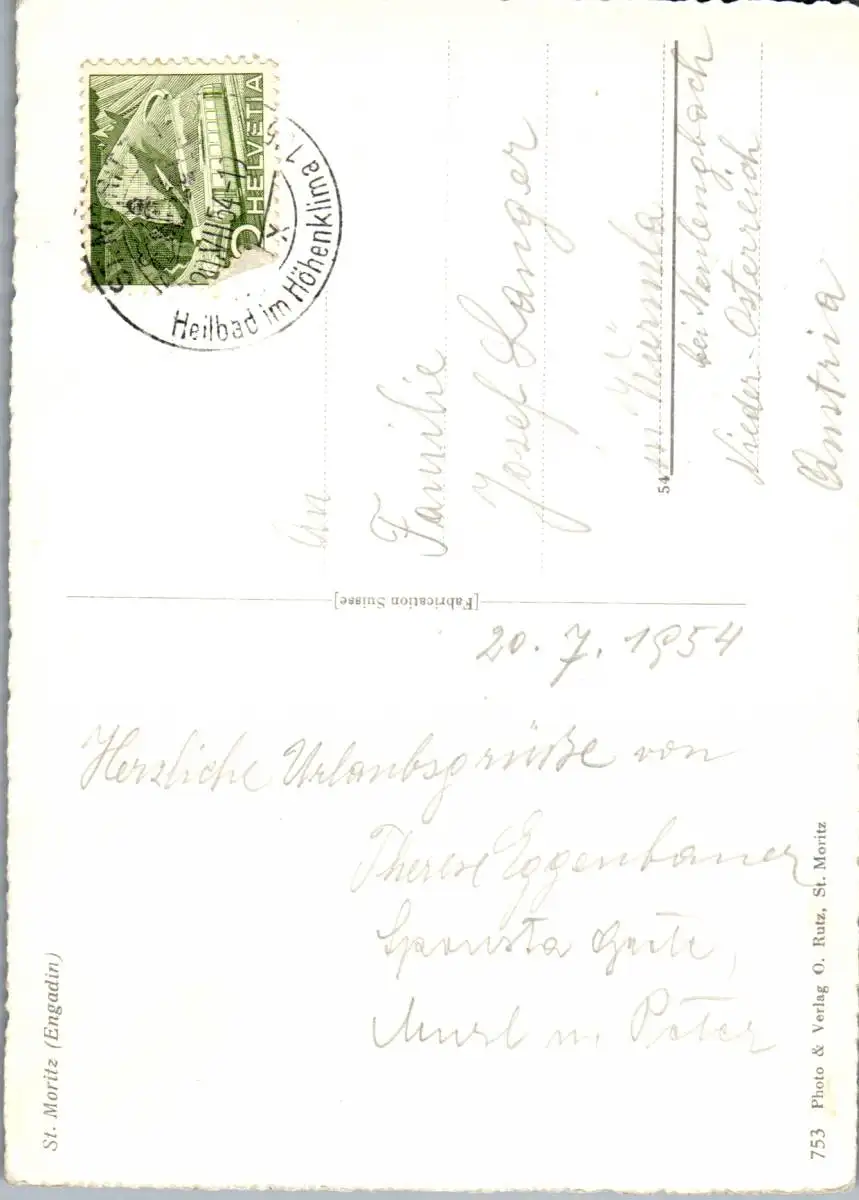 HELVETIA
20.VII.54-17
Heilbad im Höhenklima
An
Familie
Josef Langer
in Würmla
bei Neulengbach
Nieder-Österreich
Austria
54
[Fabrication Suisse]
20. 7. 1954
Herzliche Urlaubsgrüße von
Therese Eggenbauer
Grete,
u. Peter
St. Moritz (Engadin)
753 Photo & Verlag O. Rutz, St. Moritz